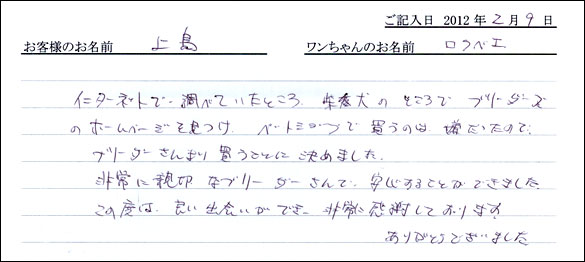 ご記入日 2012年2月9日
お客様のお名前 上島 ワンちゃんのお名前 ロクベエ
インターネットで調べていたところ、柴犬のところでブリーダーズ
のホームページを見つけ、ペットショップで買うのは嫌だったので、
ブリーダーさんより買うことに決めました。
非常に親切なブリーダーさんで、安心することができました
この度は、良い出会いができ、非常に感謝しております!
ありがとうございました